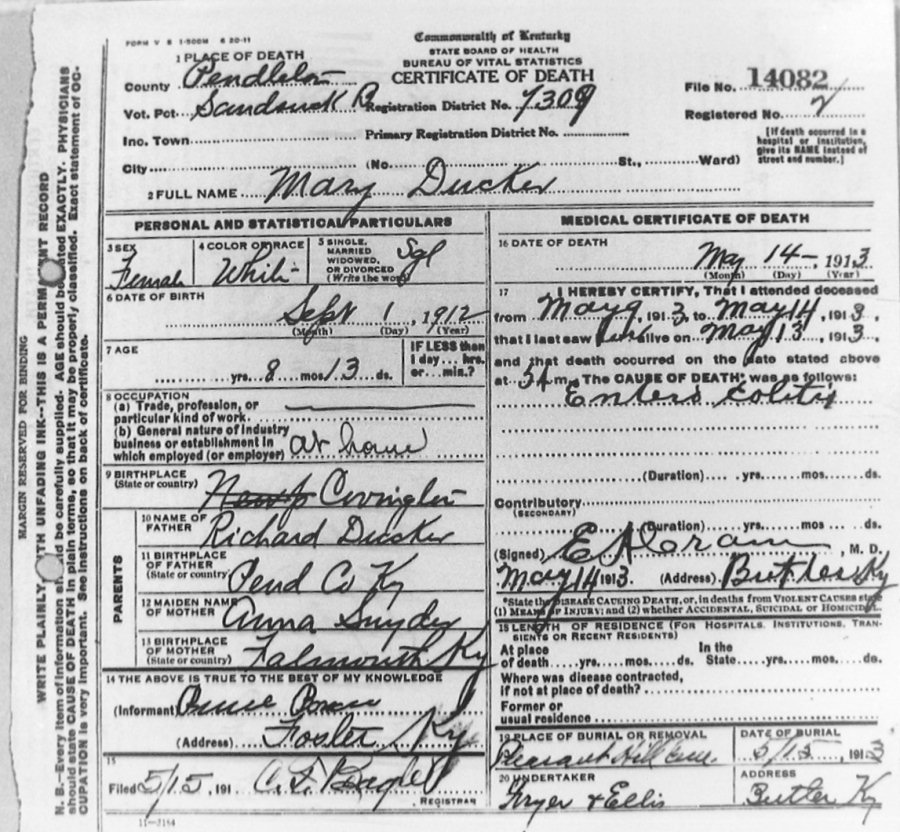 FORM V S 1-500M 6 20-11
Commonwealth of Kentucky
STATE BOARD OF HEALTH
BUREAU OF VITAL STATISTICS
CERTIFICATE OF DEATH
1 PLACE OF DEATH
County Pendleton
Vot. Pct. Registration District No. 7309
Inc. Town Primary Registration District No.
City (No. St., Ward)
File No. 14082
Registered No. 2
[If death occurred in a
hospital or institution,
give its NAME instead of
street and number.]
2 FULL NAME Mary Ducker
PERSONAL AND STATISTICAL PARTICULARS
3 SEX
Female
4 COLOR OR RACE
White
5 SINGLE,
MARRIED
WIDOWED,
OR DIVORCED
(Write the word)
Sgl
6 DATE OF BIRTH
Sept 1, 1912
(Month) (Day) (Year)
7 AGE
yrs. 8 mos 13 ds.
IF LESS than
1 day... hrs.
or... min.?
8 OCCUPATION
(a) Trade, profession, or
particular kind of work
(b) General nature of industry
business or establishment in
which employed (or employer) at home
9 BIRTHPLACE
(State or country) Covington
PARENTS
10 NAME OF
FATHER Richard Ducker
11 BIRTHPLACE
OF FATHER
(State or country) Pend Co Ky
12 MAIDEN NAME
OF MOTHER Anna Snyder
13 BIRTHPLACE
OF MOTHER
(State or country) Falmouth Ky
14 THE ABOVE IS TRUE TO THE BEST OF MY KNOWLEDGE
(Informant
(Address) Foster Ky
15
Filed 5/15, 191
REGISTRAR
11-3184
MEDICAL CERTIFICATE OF DEATH
16 DATE OF DEATH
May 14, 1913
(Month) (Day) (Year)
17 I HEREBY CERTIFY, That I attended deceased
from May 9, 1913, to May 14, 1913,
that I last saw alive on May 13, 1913,
and that death occurred on the date stated above
at m. The CAUSE OF DEATH* was as follows:
Entero Colitis
(Duration) yrs. mos. ds.
Contributory
(SECONDARY)
(Duration) yrs. mos. ds.
(Signed) Cram, M. D.
May 14 1913. (Address) Butler Ky
*State the DISEASE CAUSING DEATH, or, in deaths from VIOLENT CAUSES state
(1) MEANS OF INJURY; and (2) whether ACCIDENTAL, SUICIDAL or HOMICIDAL.
18 LENGTH OF RESIDENCE (FOR HOSPITALS, INSTITUTIONS, TRAN-
SIENTS OR RECENT RESIDENTS)
At place In the
of death yrs. mos. ds. State yrs. mos. ds.
Where was disease contracted,
if not at place of death?
Former or
usual residence
19 PLACE OF BURIAL OR REMOVAL
Pleasant Hill Cem.
DATE OF BURIAL
5/15, 1913
20 UNDERTAKER
Fryer & Ellis
ADDRESS
Butler Ky
MARGIN RESERVED FOR BINDING
WRITE PLAINLY WITH UNFADING INK--THIS IS A PERMANENT RECORD
N. B.--Every item of information should be carefully supplied. AGE should be stated EXACTLY. PHYSICIANS
should state CAUSE OF DEATH in plain terms, so that it may be properly classified. Exact statement of OC-
CUPATION is very important. See instructions on back of certificate.